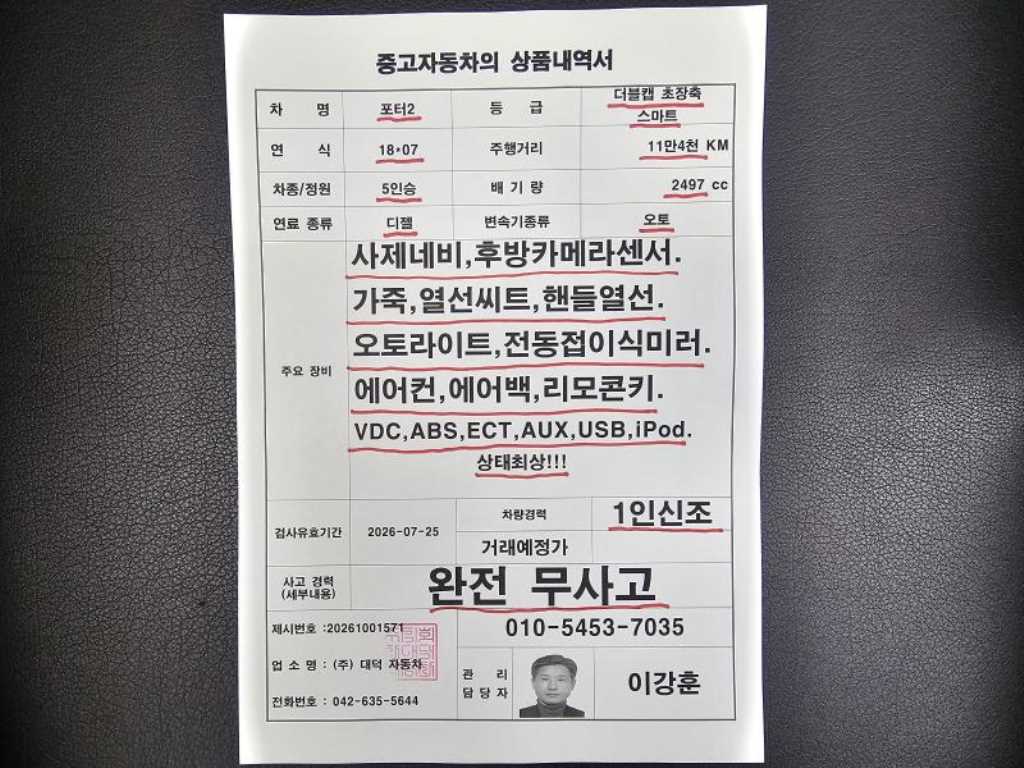 중고자동차의 상품내역서
차 명 포터2 등 급 더블캡 초장축
스마트
연 식 18•07 주행거리 11만4천 KM
차종/정원 5인승 배 기 량 2497 cc
연료 종류 디젤 변속기종류 오토
사제네비,후방카메라센서.
가죽,열선씨트,핸들열선.
오토라이트,전동접이식미러.
주요 장비
에어컨,에어백,리모콘키.
VDC,ABS,ECT,AUX,USB,iPod.
상태최상!!!
검사유효기간 2026-07-25 차량경력 1인신조
거래예정가
사고 경력
(세부내용)
완전 무사고
제시번호 :20261001571
010-5453-7035
업 소 명 : (주) 대덕 자동차
전화번호 : 042-635-5644
관 리
담 당 자
이강훈